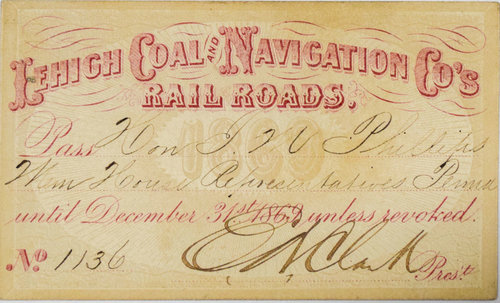 LEHIGH COAL AND NAVIGATION CO'S
RAIL ROADS.
1869
Pass Hon Phillips
Mem House Representatives Penna
until December 31st 1869 unless revoked.
No 1136 E W Clark Prest.